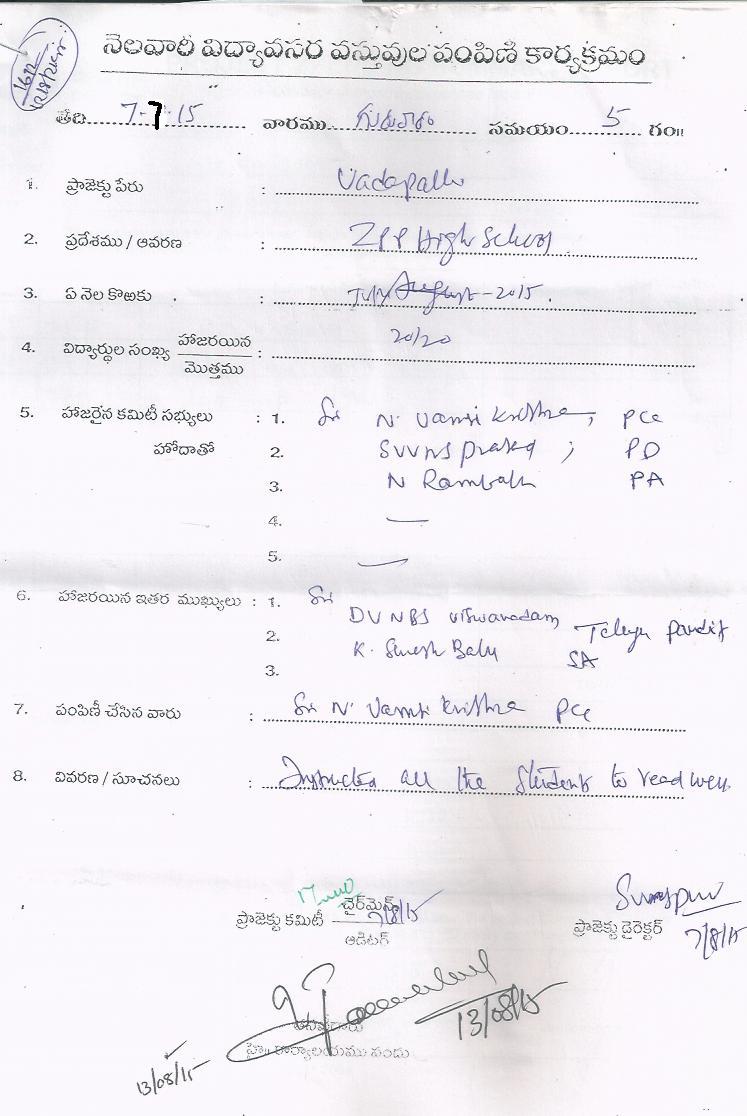 1672
12/8/2015
నెలవారీ విద్యావసర వస్తువుల పంపిణీ కార్యక్రమం
తేది 7-7-15 వారము గురువారం సమయం 5 గం॥
1. ప్రాజెక్టు పేరు : Vadapalli
2. ప్రదేశము / ఆవరణ : ZPP High School
3. ఏ నెల కొఱకు : July August-2015.
4. విద్యార్థుల సంఖ్య హాజరయిన / మొత్తము : 20/20
5. హాజరైన కమిటీ సభ్యులు : 1. Sri N. Vamsi Krishna, PCC
హోదాతో 2. SVVNS Prasad ; PD
3. N Rambabu PA
4. —
5. —
6. హాజరయిన ఇతర ముఖ్యులు : 1. Sri DVNBS Viswanadam, Telugu Pandit
2. K. Suresh Babu SA
3.
7. పంపిణీ చేసిన వారు : Sri N. Vamsi Krishna PCC
8. వివరణ / సూచనలు : Instructed all the Students to read well.
చైర్‌మెన్ 7/8/15
ప్రాజెక్టు కమిటీ
ఆడిటర్
ప్రాజెక్టు డైరెక్టర్ 7/8/15
13/08/15
13/08/15
హై॥ కార్యాలయము నందు